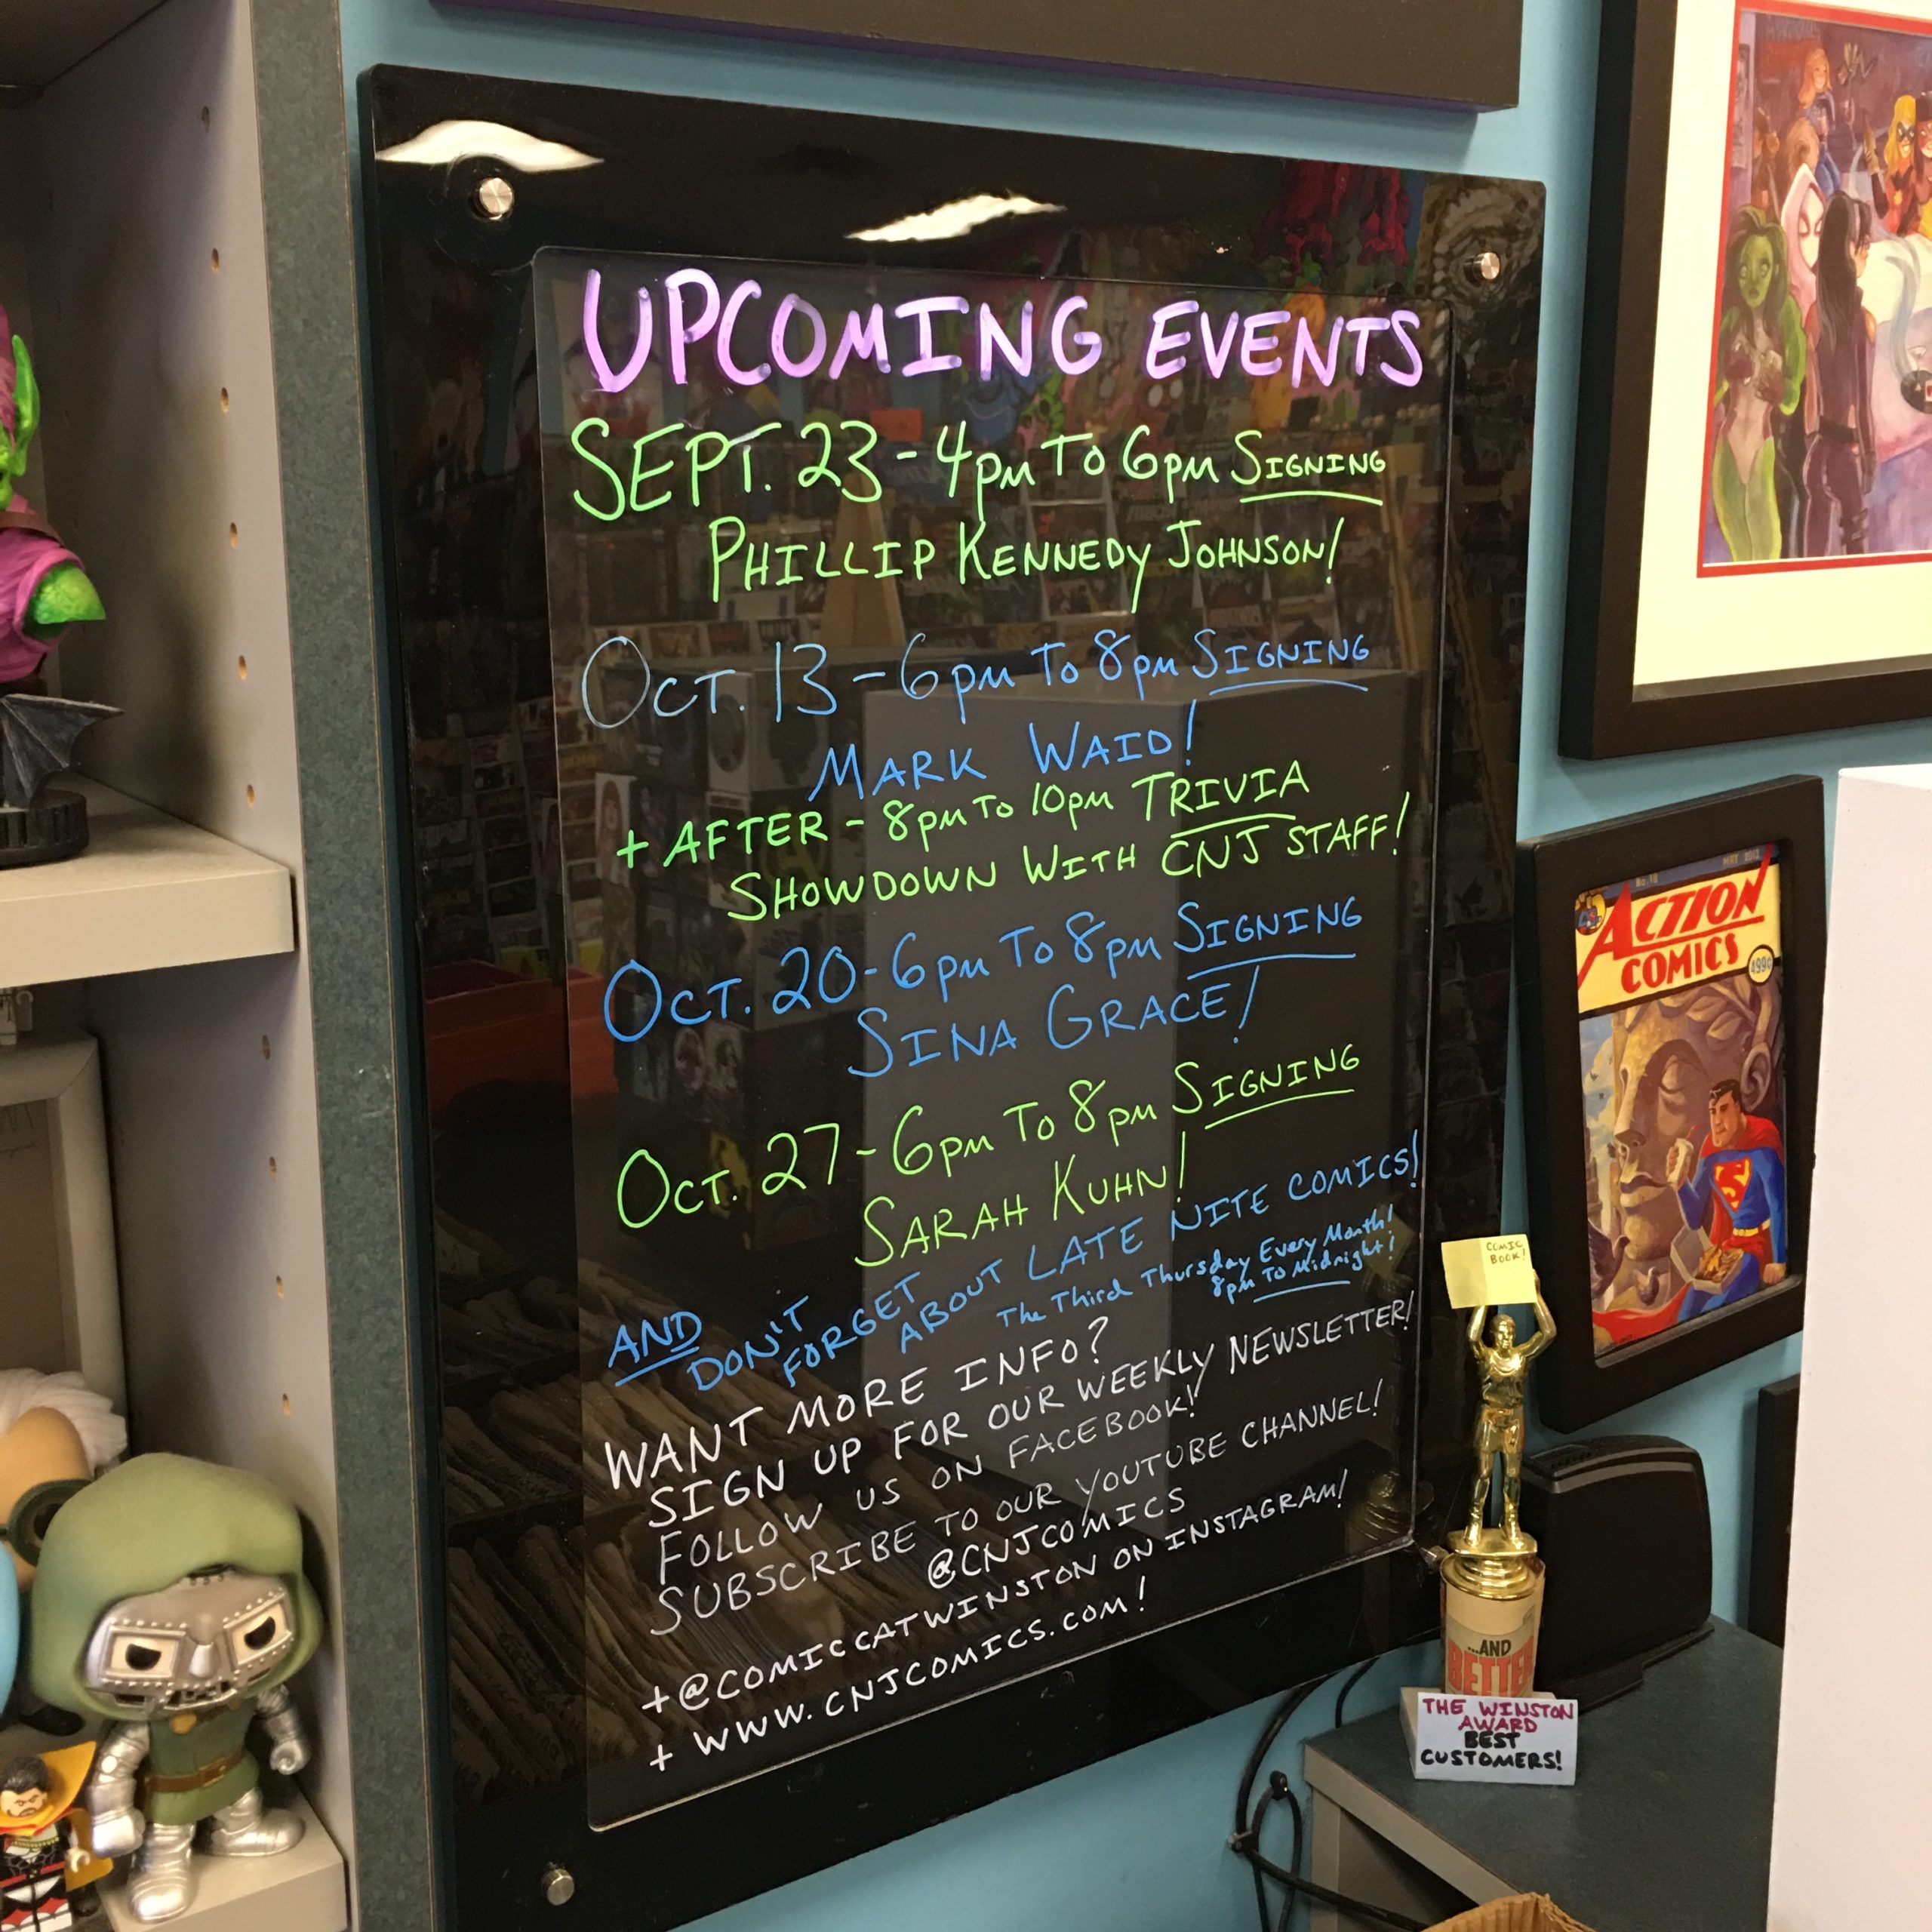 UPCOMING EVENTS
SEPT. 23 - 4pm To 6pm SIGNING
PHILLIP KENNEDY JOHNSON!
OCT. 13 - 6pm To 8pm SIGNING
MARK WAID!
+ AFTER - 8pm To 10pm TRIVIA
SHOWDOWN WITH CNJ STAFF!
OCT. 20 - 6pm To 8pm SIGNING
SINA GRACE!
OCT. 27 - 6pm To 8pm SIGNING
SARAH KUHN!
AND DON'T FORGET ABOUT LATE NITE COMICS!
The Third Thursday Every Month!
8pm To Midnight!
WANT MORE INFO?
SIGN UP FOR OUR WEEKLY NEWSLETTER!
FOLLOW US ON FACEBOOK!
SUBSCRIBE TO OUR YOUTUBE CHANNEL!
@CNJCOMICS
+ @COMICCATWINSTON ON INSTAGRAM!
+ WWW.CNJCOMICS.COM!
ACTION
COMICS
COMIC
BOOK!
...AND
BETTER
THE WINSTON
AWARD
BEST
CUSTOMERS!